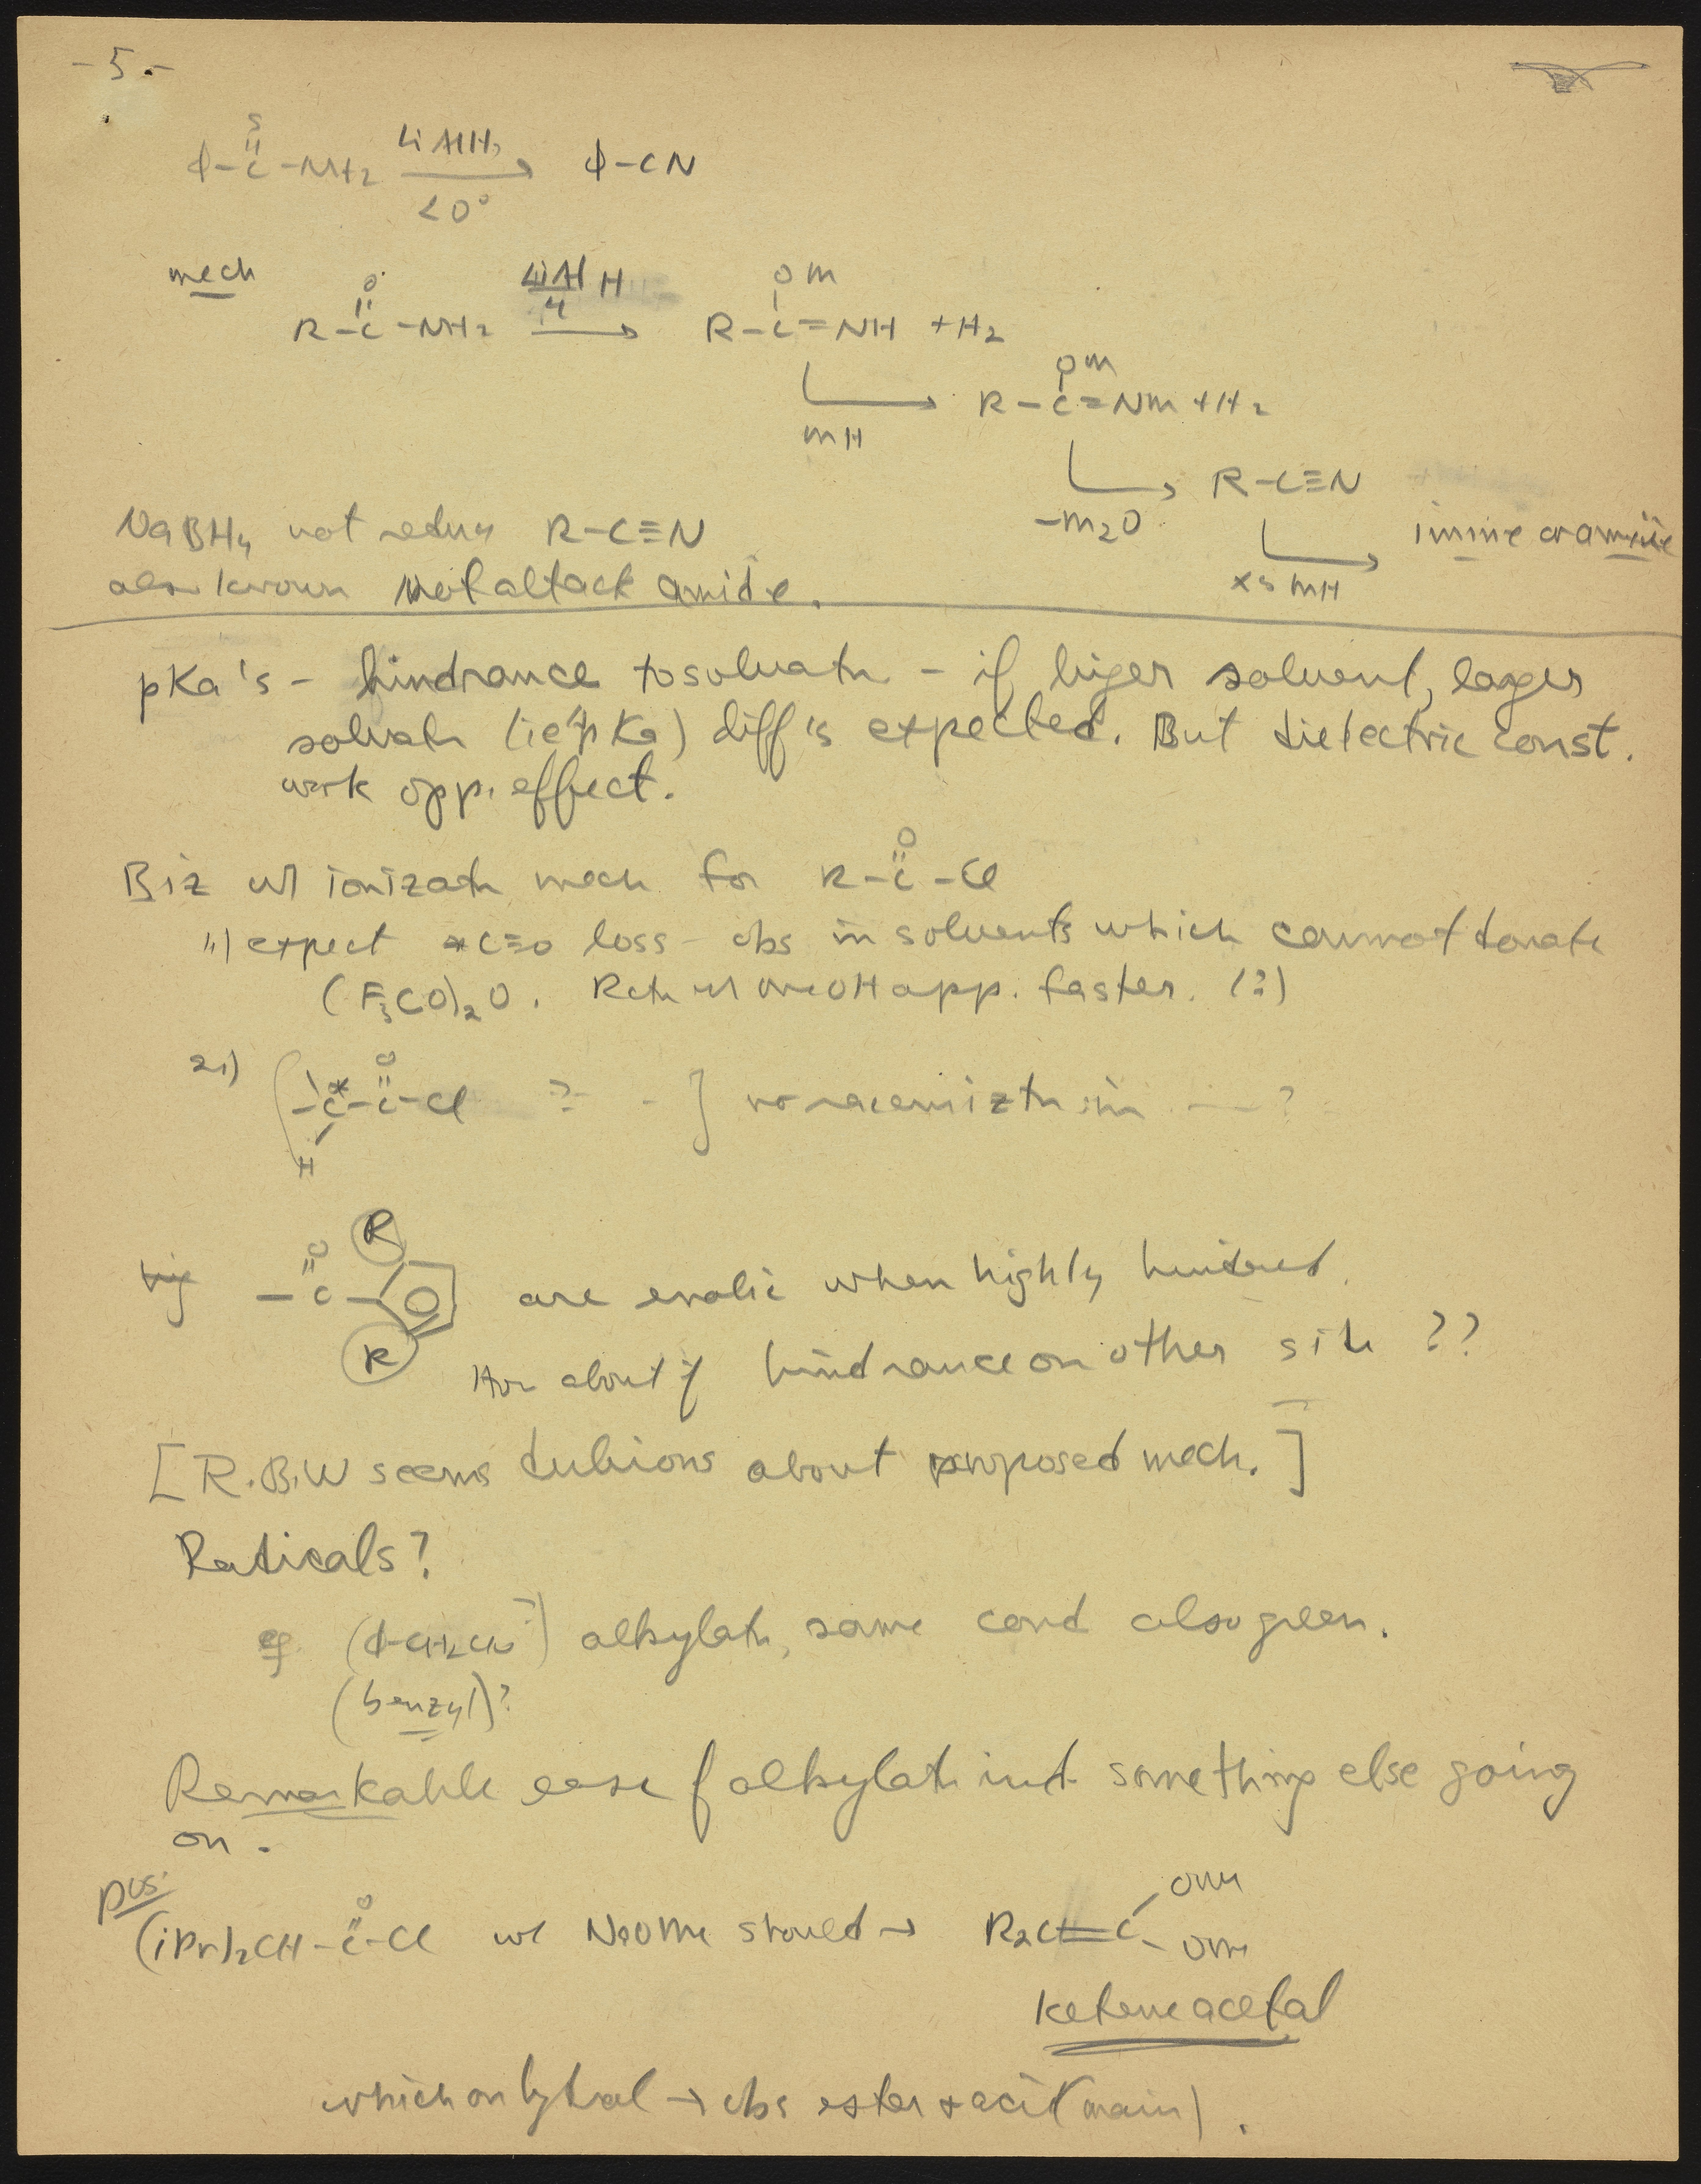 - 5 -
S
φ-C-NH2 LiAlH4 → φ-CN
<0°
mech
O LiAlH4 OM
R-C-NH2 → R-C=NH + H2
OM
mH → R-C=Nm + H2
-m2O → R-C≡N
NaBH4 not reduce R-C≡N
xs mH → imine or amine
also known not attack amide.
pKa's - hindrance to solvatn - if biger solvent, larger
solvatn (ie pKa) diff's expected. But dielectric const.
work opp. effect.
O
Biz w/ ionizatn mech for R-C-Cl
1) expect *C≡O loss - obs in solvents which cannot donate
(F3CO)2O. Rctn w/ MeOH app. faster. (?)
2)
O
-C*-C-Cl ? - ] no racemiztn in — ?
H
R
O
-C- are enolic when highly hindered.
R
How about if hindrance on other side ??
[R.B.W seems dubious about proposed mech.]
Radicals?
eg alkylatn, same cond also green.
(benzyl)?
Remarkable ease of alkylatn ind. something else going
on.
pos.
O OMe
(iPr)2CH-C-Cl w/ NaOMe should → R2C=C
OMe
ketene acetal
which on hydrol → obs ester + acid (main).